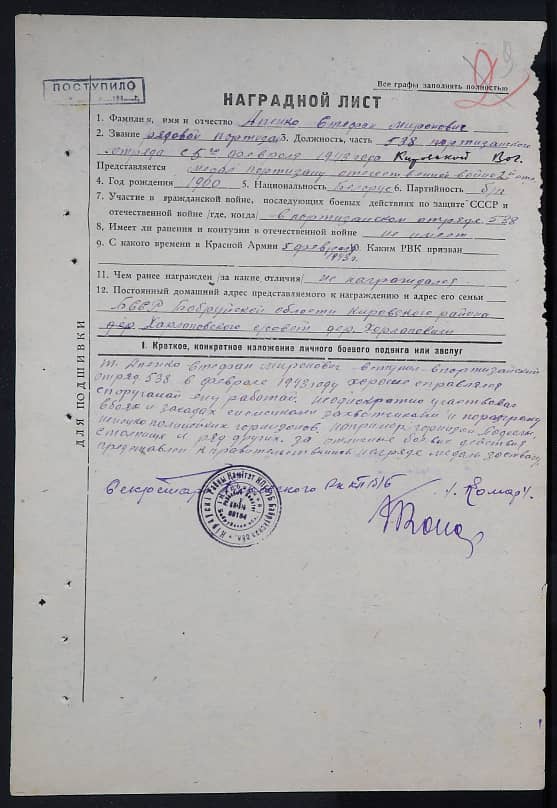 ПОСТУПИЛО
Все графы заполнять полностью
НАГРАДНОЙ ЛИСТ
1. Фамилия, имя и отчество Апенко Стефан Миронович
2. Звание рядовой 3. Должность, часть 538 партизанского
отряда с 5го февраля 1943 года Кировской
Представляется медаль партизану отечественной войне 2й ст.
4. Год рождения 1900 5. Национальность Белорус 6. Партийность б/п
7. Участие в гражданской войне, последующих боевых действиях по защите СССР и
отечественной войне /где, когда/ в партизанском отряде 538
8. Имеет ли ранения и контузии в отечественной войне не имеет
9. С какого времени в Красной Армии 5 февраля 1943 г. Каким РВК призван
11. Чем ранее награжден /за какие отличия/ не награждался
12. Постоянный домашний адрес представляемого к награждению и адрес его семьи
БССР Бобруйской области Кировского района
дер.
ДЛЯ ПОДШИВКИ
I. Краткое, конкретное изложение личного боевого подвига или заслуг
Т. Апенко Стефан Миронович вступил в партизанский
отряд 538 в феврале 1943 году хорошо справлялся
с порученой ему работай. Неоднократно участвовал
в боях и засадах с немецкими захватчиками и
немецко полицейских гарнизонов, например гарнизон
и ряд других. за отличные боевые действия
представлен к правительственной награде медаль
Секретарь Кировского РК КП/б/Б /. Комар/.